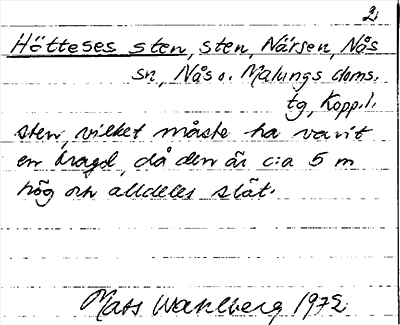 2.
Hötteses sten, sten, Närsen, Nås
sn, Nås o. Malungs doms.
tg, Kopp.l.
sten, vilket måste ha varit
en bragd, då den är c:a 5 m
hög och alldeles slät.
Mats Wahlberg 1972